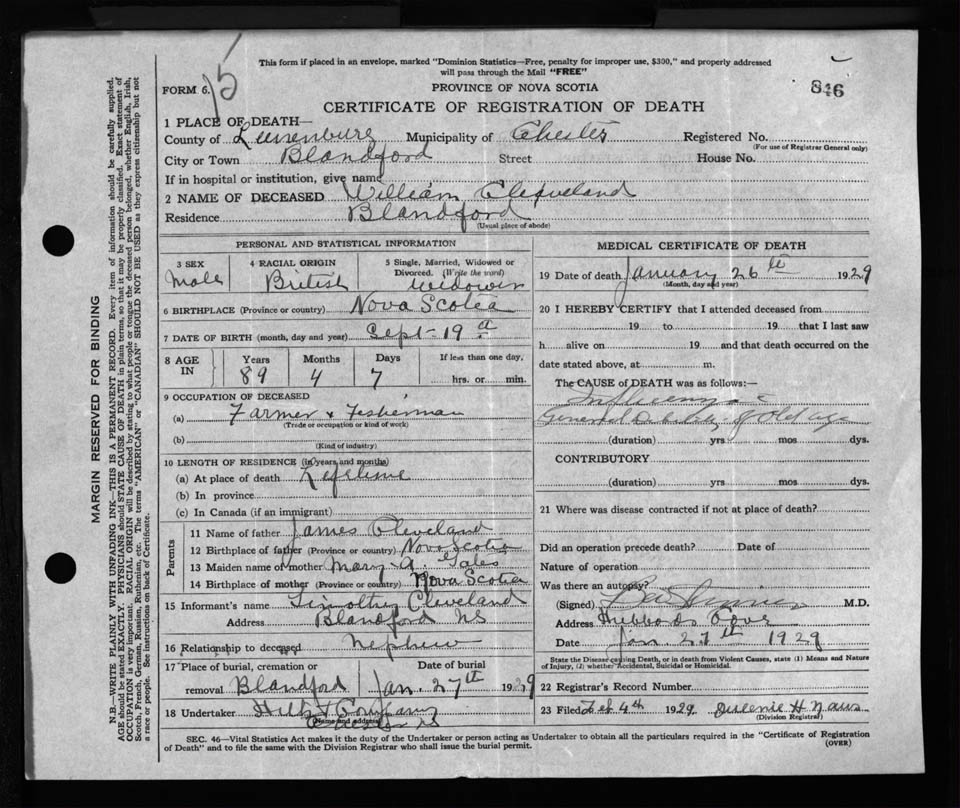 15
This form if placed in an envelope, marked "Dominion Statistics—Free, penalty for improper use, $300," and properly addressed
will pass through the Mail "FREE"
FORM 6.
PROVINCE OF NOVA SCOTIA
846
CERTIFICATE OF REGISTRATION OF DEATH
1 PLACE OF DEATH—
County of Lunenburg Municipality of Chester Registered No.
(For use of Registrar General only)
City or Town Blandford Street House No.
If in hospital or institution, give name
2 NAME OF DECEASED William Cleveland
Residence Blandford
(Usual place of abode)
PERSONAL AND STATISTICAL INFORMATION
3 SEX
Male
4 RACIAL ORIGIN
British
5 Single, Married, Widowed or
Divorced. (Write the word)
widower
6 BIRTHPLACE (Province or country) Nova Scotia
7 DATE OF BIRTH (month, day and year) Sept-19
8 AGE IN
Years Months Days If less than one day,
89 4 7 hrs. or min.
9 OCCUPATION OF DECEASED
(a) Farmer & Fisherman
(Trade or occupation or kind of work)
(b)
(Kind of industry)
10 LENGTH OF RESIDENCE (in years and months)
(a) At place of death Lifetime
(b) In province
(c) In Canada (if an immigrant)
Parents
11 Name of father James Cleveland
12 Birthplace of father (Province or country) Nova Scotia
13 Maiden name of mother Mary A.
14 Birthplace of mother (Province or country) Nova Scotia
15 Informant's name Timothy Cleveland
Address Blandford NS
16 Relationship to deceased Nephew
17 Place of burial, cremation or Date of burial
removal Blandford Jan. 27th 1929
18 Undertaker Company
(Name and address)
MEDICAL CERTIFICATE OF DEATH
19 Date of death January 26th 1929
(Month, day and year)
20 I HEREBY CERTIFY that I attended deceased from
19 to 19 that I last saw
h alive on 19 and that death occurred on the
date stated above, at m.
The CAUSE of DEATH was as follows:—
Influenza
General Debility of Old age
(duration) yrs mos dys.
CONTRIBUTORY
(duration) yrs mos dys.
21 Where was disease contracted if not at place of death?
Did an operation precede death? Date of
Nature of operation
Was there an autopsy?
(Signed) M.D.
Address Hubbards Cove
Date Jan 27th 1929
State the Disease causing Death, or in death from Violent Causes, state (1) Means and Nature
of Injury, (2) whether Accidental, Suicidal or Homicidal.
22 Registrar's Record Number
23 Filed Feb 4th 1929 H
(Division Registrar)
SEC. 46—Vital Statistics Act makes it the duty of the Undertaker or person acting as Undertaker to obtain all the particulars required in the "Certificate of Registration
of Death" and to file the same with the Division Registrar who shall issue the burial permit.
(OVER)
MARGIN RESERVED FOR BINDING
N.B.—WRITE PLAINLY WITH UNFADING INK—THIS IS A PERMANENT RECORD. Every item of information should be carefully supplied.
AGE should be stated EXACTLY. PHYSICIANS should STATE CAUSE OF DEATH in plain terms, so that it may be properly classified. Exact statement of
OCCUPATION is very important. RACIAL ORIGIN will be described by stating to what people or tongue the deceased person belonged, whether English, Irish,
Scotch, French, German, Russian, Ruthenian, etc. The terms "AMERICAN" or "CANADIAN" SHOULD NOT BE USED as they express citizenship but not
a race or people. See instructions on back of Certificate.